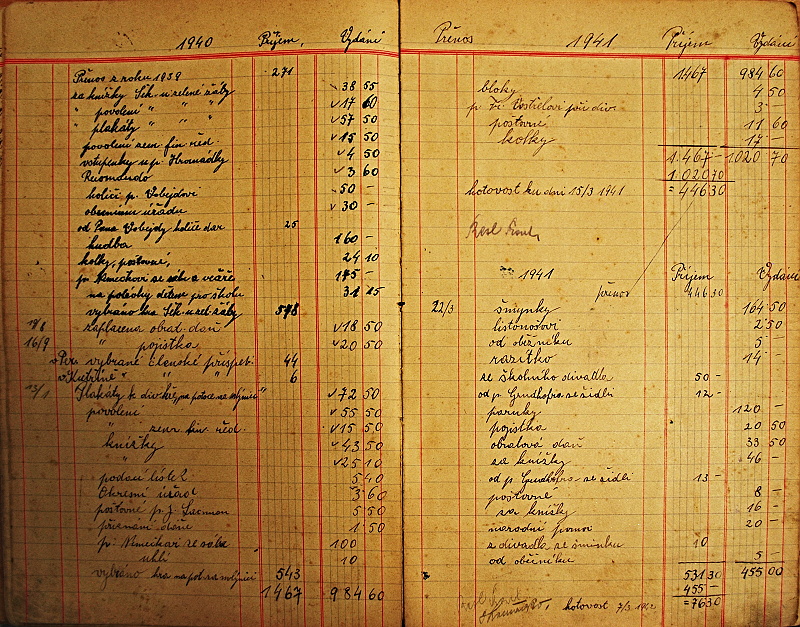 1940 Příjem, Vydání
Přenos z roku 1939 271
za knížky Sek. u zelené žáby 38 55
" povolení " " " 17 60
" plakáty " " " 57 50
povolení zem. fin. řed. 15 50
vstupenky u p. Hromádky 4 50
3 60
holiči p. Vobejdovi 50 -
obecnímu úřadu 30 -
od Pana Vobejdy holiče dar 25
hudba 160 -
kolky, poštovné, 24 10
p. Němečkovi se sálu a večeře 175 -
na polévky dětem pro školu 31 15
vybráno hra Sek. u zel. žáby 578
zaplacena obrat. daň 18 50
16/9 " pojistka 20 50
vybrané členské příspěv. 44
6
Plakáty k div. 72 50
povolení 55 50
" zem. fin. řed. 15 50
knížky 43 50
" 25 10
podací lístek 5 40
Okresní úřad 3 60
poštovné p. J. 5 50
přiznání daně 1 50
p. Němečkovi se sálu 100
uhlí 10
vybráno hra na pot. za mlýnicí 543
1467 984 60
Přenos 1941 Příjem Vydání
1467 984 60
bloky 4 50
při div. 3 -
poštovné 11 60
kolky 17 -
1.467 - 1020 70
1.020 70
hotovost ku dni 15/3 1941 = 446 30
1941 Příjem Vydání
přenos 446 30
22/3 šmynky 164 50
listonošovi 2 50
od oběžníku 5 -
razítko 14 -
ze školního divadla 50 -
od p. Grundhofra se židlí 12 -
paruky 120 -
pojistka 20 50
obratová daň 33 50
za knížky 46 -
od p. Grundhofra se židlí 13 -
poštovné 8 -
za knížky 16 -
národní pomoc 20 -
z divadla ze šminku 10
od oběžníku 5 -
531 30 455 00
455 -
hotovost 7/3 1942 = 76 30